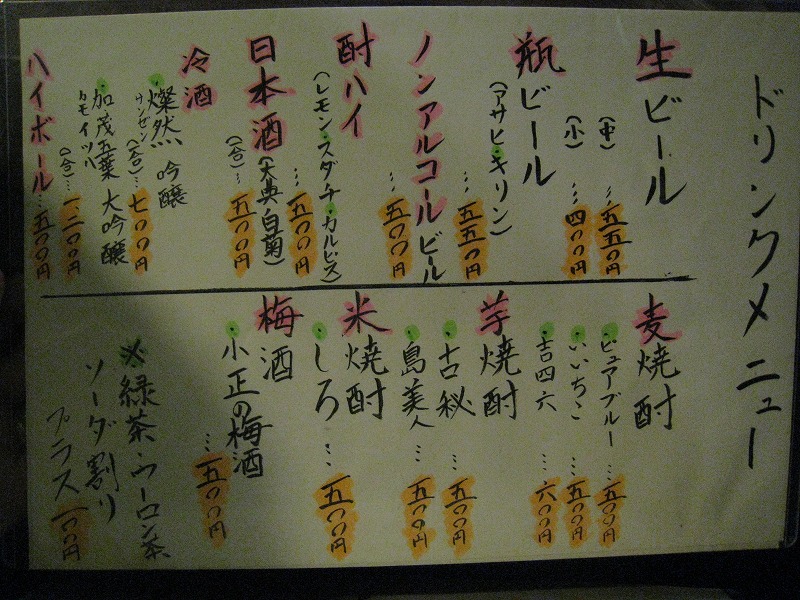 ドリンクメニュー
生ビール
(中)…五五〇円
(小)…四〇〇円
瓶ビール
(アサヒ・キリン)
…五五〇円
ノンアルコールビール
…五〇〇円
酎ハイ
(レモン・スダチ・カルピス)
…五〇〇円
日本酒(大典白菊)
(一合)…五〇〇円
冷酒
・燦然 吟醸
サンゼン(一合)…七〇〇円
・加茂五葉 大吟醸
カモイツハ
(一合)…一、二〇〇円
ハイボール…五〇〇円
麦焼酎
・ピュアブルー…五〇〇円
・いいちこ…五〇〇円
・吉四六…六〇〇円
芋焼酎
・古秘…五〇〇円
・島美人…五〇〇円
米焼酎
・しろ…五〇〇円
梅酒
・小正の梅酒
…五〇〇円
※緑茶・ウーロン茶
ソーダ割り
プラス一〇〇円